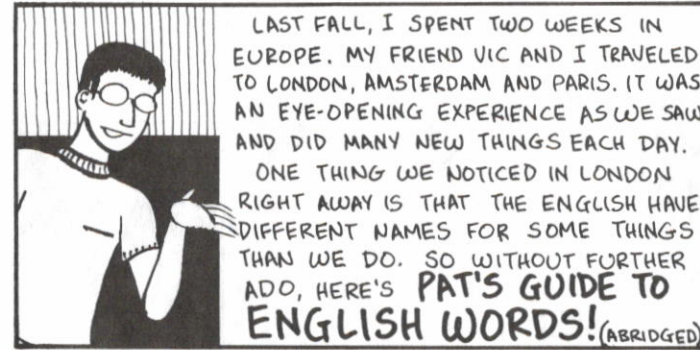 LAST FALL, I SPENT TWO WEEKS IN
EUROPE. MY FRIEND VIC AND I TRAVELED
TO LONDON, AMSTERDAM AND PARIS. IT WAS
AN EYE-OPENING EXPERIENCE AS WE SAW
AND DID MANY NEW THINGS EACH DAY.
ONE THING WE NOTICED IN LONDON
RIGHT AWAY IS THAT THE ENGLISH HAVE
DIFFERENT NAMES FOR SOME THINGS
THAN WE DO. SO WITHOUT FURTHER
ADO, HERE'S PAT'S GUIDE TO
ENGLISH WORDS! (ABRIDGED)